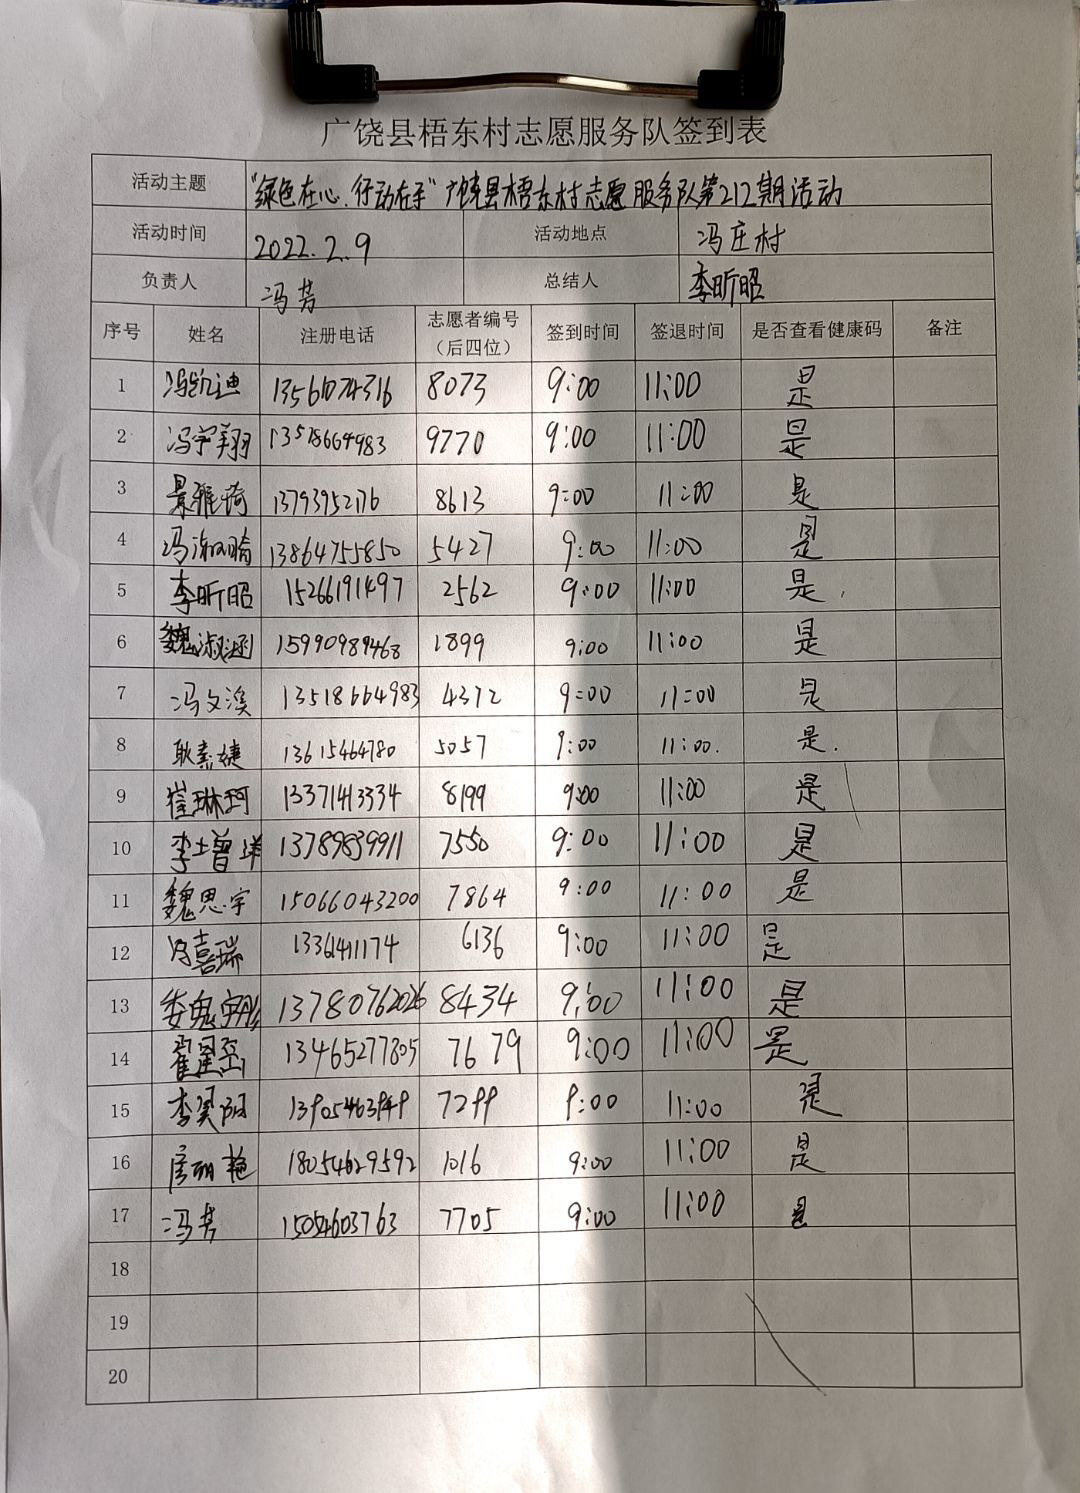 广饶县梧东村志愿服务队签到表
活动主题 "绿色在心.行动在手"广饶县梧东村志愿服务队第212期活动
活动时间 2022.2.9 活动地点 冯庄村
负责人 冯芳 总结人 李昕昭
序号 姓名 注册电话 志愿者编号（后四位） 签到时间 签退时间 是否查看健康码 备注
1 冯凯迪 13561074316 8073 9:00 11:00 是
2 冯宇翔 13518664983 9770 9:00 11:00 是
3 景雅琦 13793952176 8613 9:00 11:00 是
4 13864755850 5427 9:00 11:00 是
5 李昕昭 15266191497 2562 9:00 11:00 是
6 魏淑涵 15990989468 1899 9:00 11:00 是
7 冯文溪 13518664983 4372 9:00 11:00 是
8 耿素婕 13615464780 5057 9:00 11:00. 是.
9 崔琳珂 13371413334 8199 9:00 11:00 是
10 李增洋 13789839911 7550 9:00 11:00 是
11 魏思宇 15066043200 7864 9:00 11:00 是
12 冯嘉瑞 13361411174 6136 9:00 11:00 是
13 魏宇彤 13780762026 8434 9:00 11:00 是
14 13465277805 7679 9:00 11:00 是
15 李昊阳 7299 9:00 11:00 是
16 18054629592 1016 9:00 11:00 是
17 冯芳 15054603763 7705 9:00 11:00 是
18
19
20